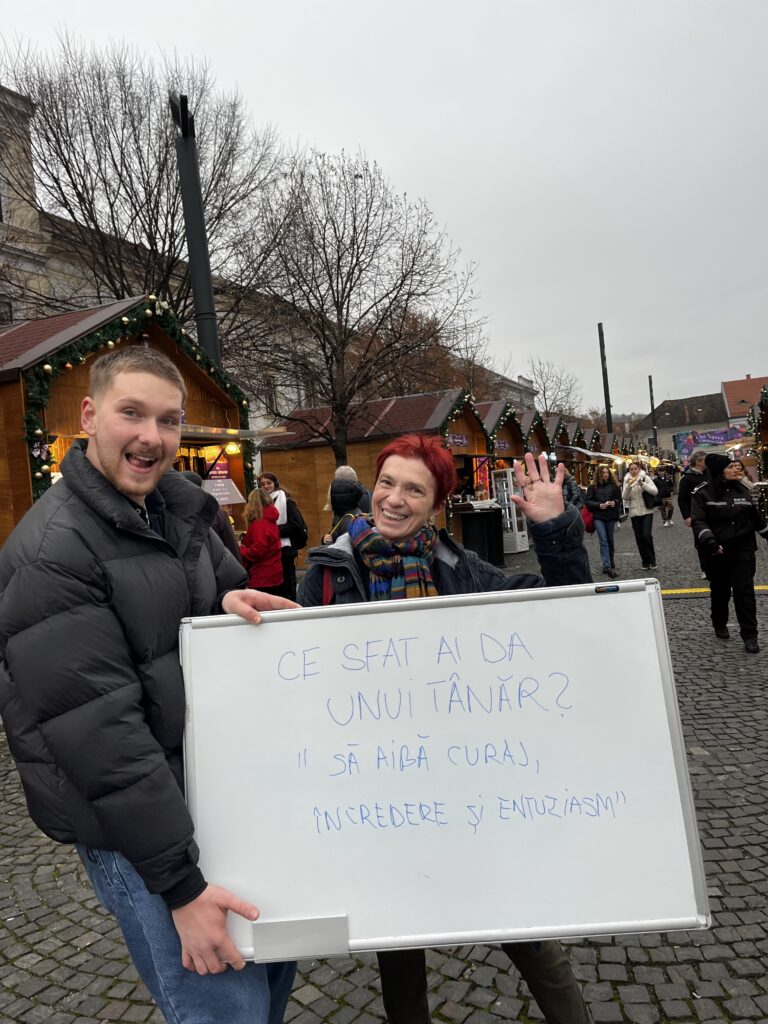 CE SFAT AI DA
UNUI TÂNĂR?
"SĂ AIBĂ CURAJ,
ÎNCREDERE ȘI ENTUZIASM"